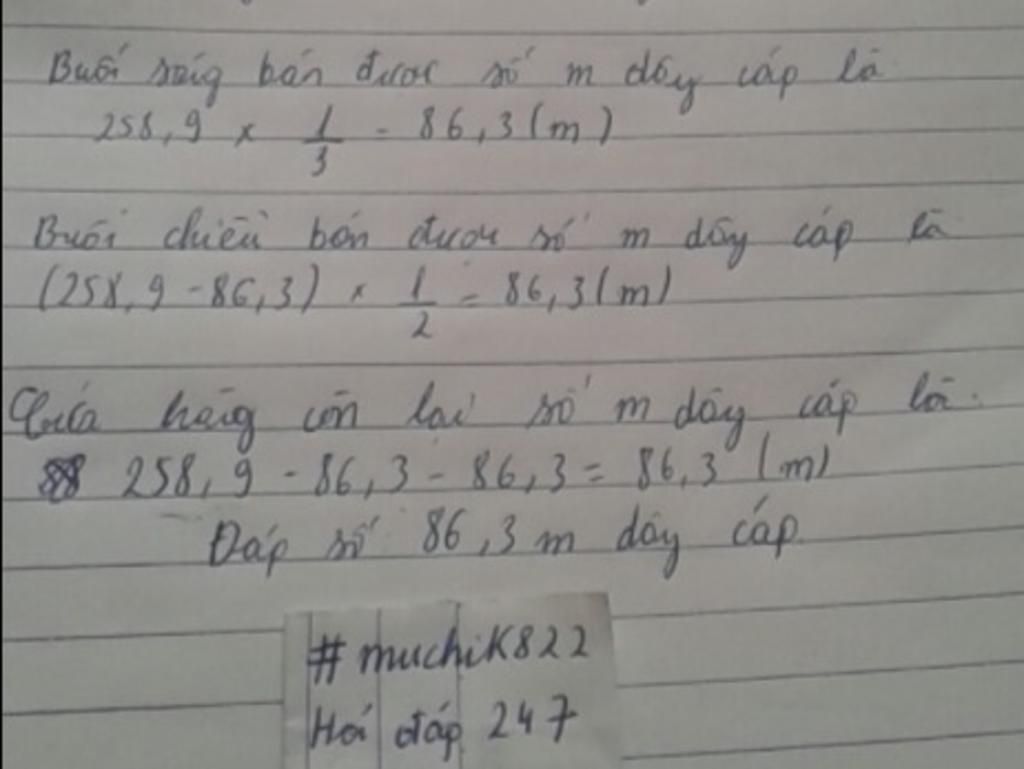 Buổi sáng bán được số m dây cáp là
258,9 × 1/3 = 86,3 (m)
Buổi chiều bán được số m dây cáp là
(258,9 - 86,3) × 1/2 = 86,3 (m)
Cửa hàng còn lại số m dây cáp là.
258,9 - 86,3 - 86,3 = 86,3 (m)
Đáp số 86,3 m dây cáp.
#muchiK822
Hỏi đáp 247